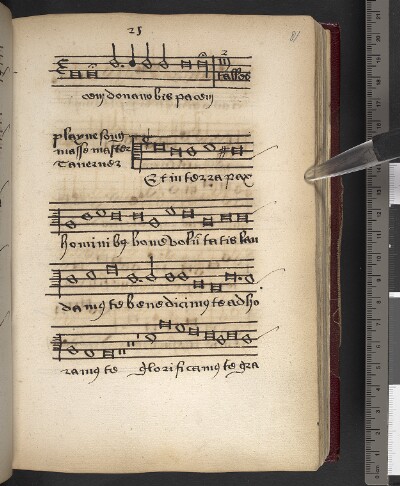 25
81
2
iij
basses
cem dona nobis pacem
playnesong
masse master
Taverner
Et in terra pax
hominibȝ bone volūtatis lau
damȝ te benedicimȝ te adho
ramȝ te glorificamȝ te gra